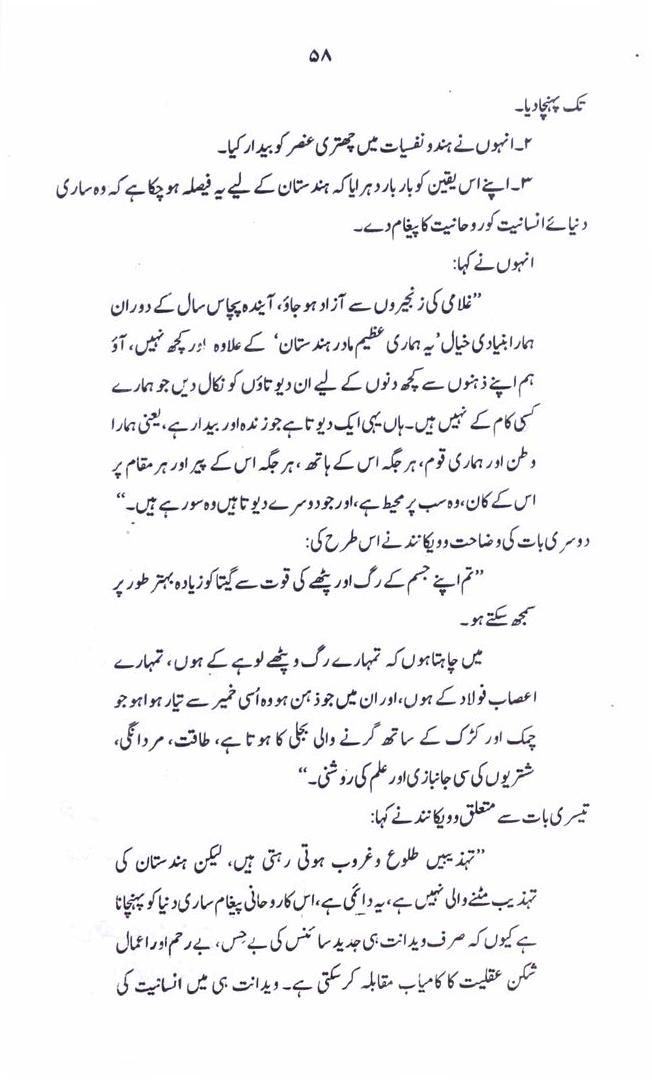 ۵۸
تک پہنچادیا۔
۲۔انہوں نے ہندو نفسیات میں چھتری عنصر کو بیدار کیا۔
۳۔اپنے اس یقین کو بار بار دہرایا کہ ہندستان کے لیے یہ فیصلہ ہو چکا ہے کہ وہ ساری
دنیائے انسانیت کو روحانیت کا پیغام دے۔
انہوں نے کہا:
”غلامی کی زنجیروں سے آزاد ہو جاؤ، آیندہ پچاس سال کے دوران
ہمارا بنیادی خیال ’یہ ہماری عظیم مادر ہندستان‘ کے علاوہ اور کچھ نہیں، آؤ
ہم اپنے ذہنوں سے کچھ دنوں کے لیے ان دیوتاؤں کو نکال دیں جو ہمارے
کسی کام کے نہیں ہیں۔ہاں یہی ایک دیوتا ہے جو زندہ اور بیدار ہے، یعنی ہمارا
وطن اور ہماری قوم، ہر جگہ اس کے ہاتھ، ہر جگہ اس کے پیر اور ہر مقام پر
اس کے کان، وہ سب پر محیط ہے، اور جو دوسرے دیوتا ہیں وہ سو رہے ہیں۔“
دوسری بات کی وضاحت وویکانند نے اس طرح کی:
”تم اپنے جسم کے رگ اور پٹھے کی قوت سے گیتا کو زیادہ بہتر طور پر
سمجھ سکتے ہو۔
میں چاہتا ہوں کہ تمہارے رگ و پٹھے لوہے کے ہوں، تمہارے
اعصاب فولاد کے ہوں، اور ان میں جو ذہن ہو وہ اُسی خمیر سے تیار ہوا ہو جو
چمک اور کڑک کے ساتھ گرنے والی بجلی کا ہوتا ہے، طاقت، مردانگی،
شتریوں کی سی جانبازی اور علم کی روشنی۔“
تیسری بات سے متعلق وویکانند نے کہا:
”تہذیبیں طلوع و غروب ہوتی رہتی ہیں، لیکن ہندستان کی
تہذیب مٹنے والی نہیں ہے، یہ دائمی ہے، اس کا روحانی پیغام ساری دنیا کو پہنچانا
ہے کیوں کہ صرف ویدانت ہی جدید سائنس کی بے حِس، بے رحم اور اعمال
شکن عقلیت کا کامیاب مقابلہ کرسکتی ہے۔ ویدانت ہی میں انسانیت کی